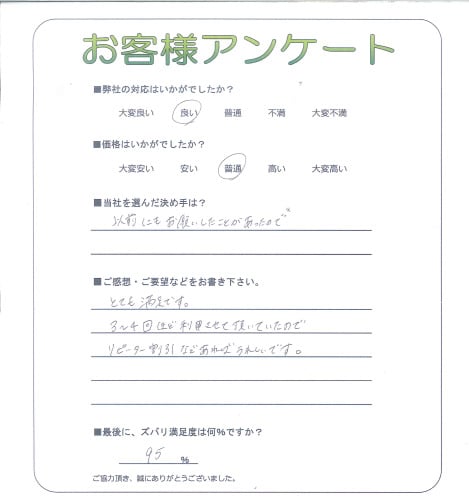 お客様アンケート
■弊社の対応はいかがでしたか？
大変良い 良い 普通 不満 大変不満
■価格はいかがでしたか？
大変安い 安い 普通 高い 大変高い
■当社を選んだ決め手は？
以前にもお願いしたことがあったので
■ご感想・ご要望などをお書き下さい。
とても満足です。
3〜4回ほど利用させて頂いていたので
リピーター割引などあればうれしいです。
■最後に、ズバリ満足度は何％ですか？
95 ％
ご協力頂き、誠にありがとうございました。